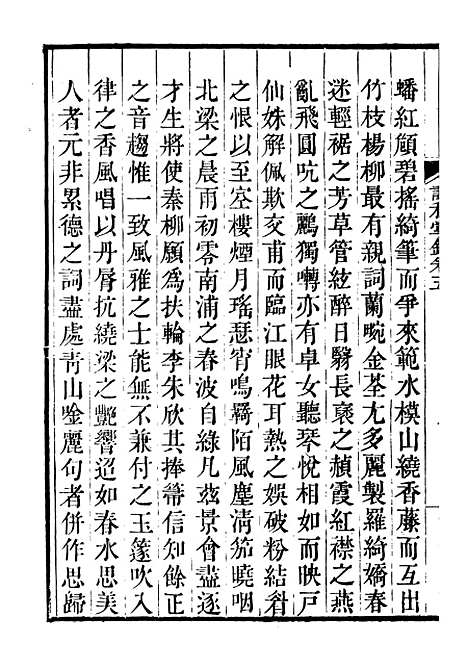 蟠紅頫碧搖綺筆而爭來範水模山繞香藤而互出
竹枝楊柳最有親詞蘭畹金荃尢多麗製羅綺嬌春
迷輕裾之芳草管絃醉日翳長裛之赬霞紅襟之燕
亂飛圓吭之鸝獨囀亦有卓女聽琴悅相如而映戶
仙姝解佩欺交甫而臨江眼花耳熱之娛破粉結眉
之恨以至空樓煙月瑤瑟宵鳴羇陌風塵淸笳曉咽
北梁之晨雨初零南浦之春波自綠凡茲景會盡逐
才生將使秦柳願爲扶輪李朱欣其捧箒信知餘正
之音趨惟一致風雅之士能無不兼付之玉篴吹入
律之香風唱以丹脣抗繞梁之艷響迢如春水思美
人者元非累德之詞盡處靑山唫麗句者併作思歸